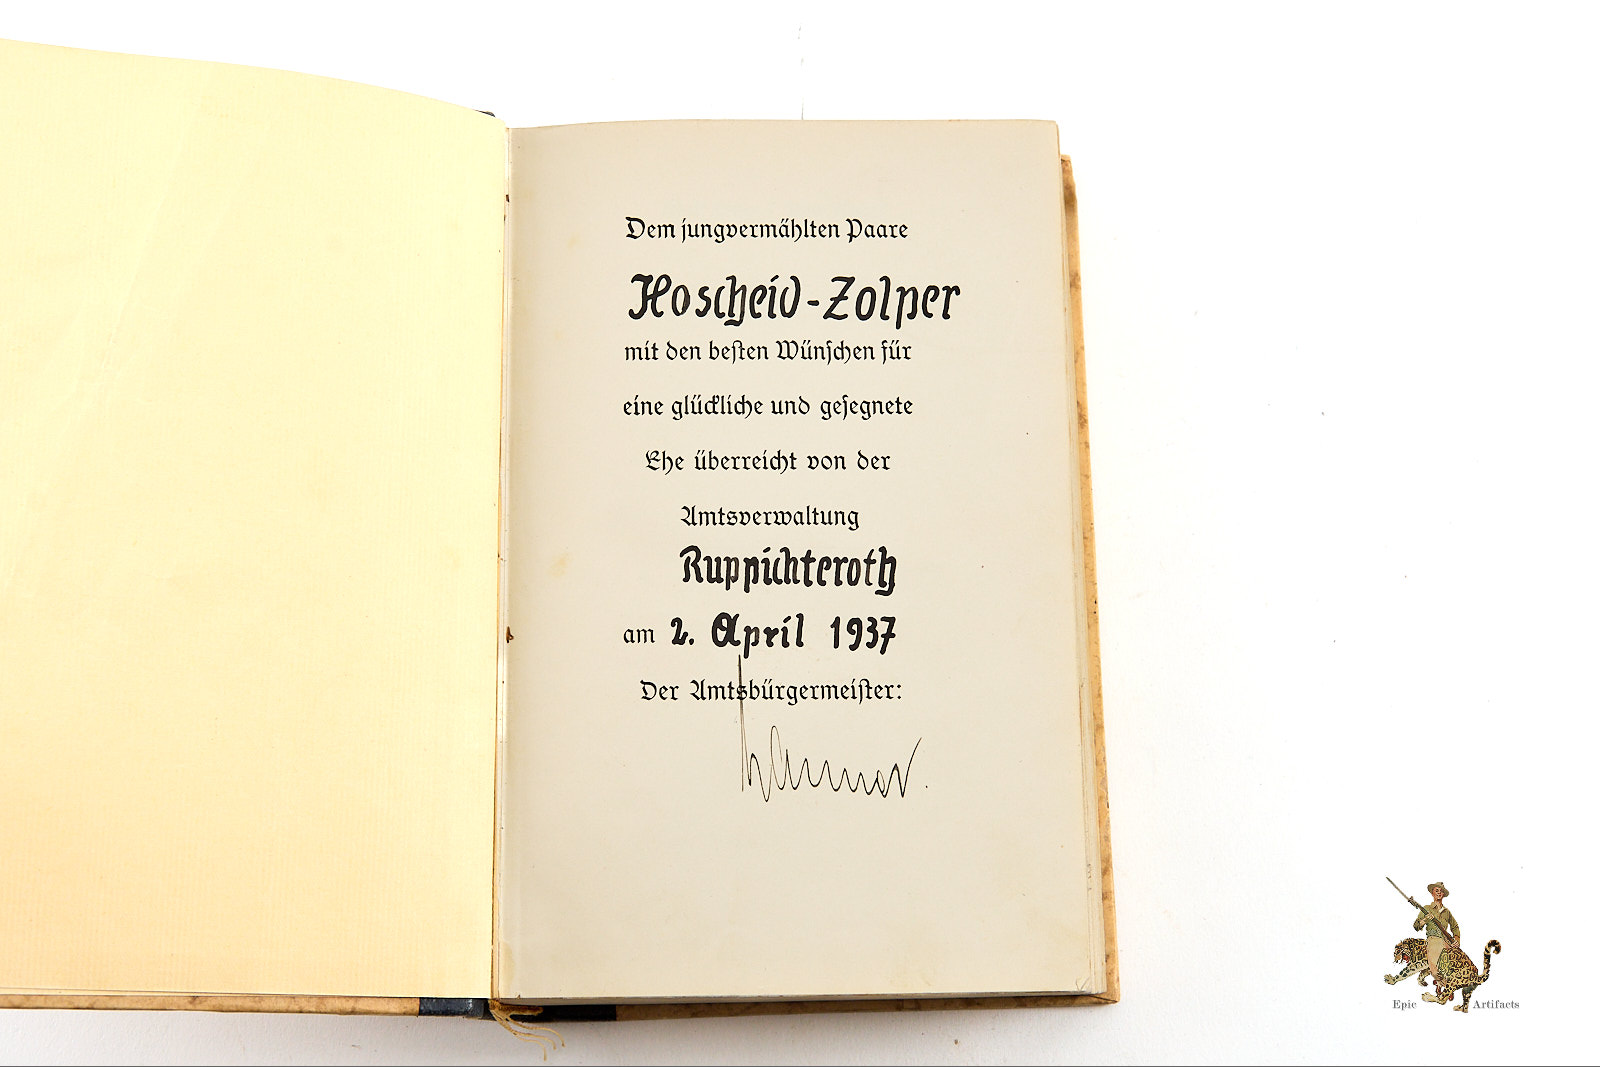 Dem jungvermählten Paare
Hoscheid-Zolper
mit den besten Wünschen für
eine glückliche und gesegnete
Ehe überreicht von der
Amtsverwaltung
Ruppichteroth
am 2. April 1937
Der Amtsbürgermeister:
Epic Artifacts